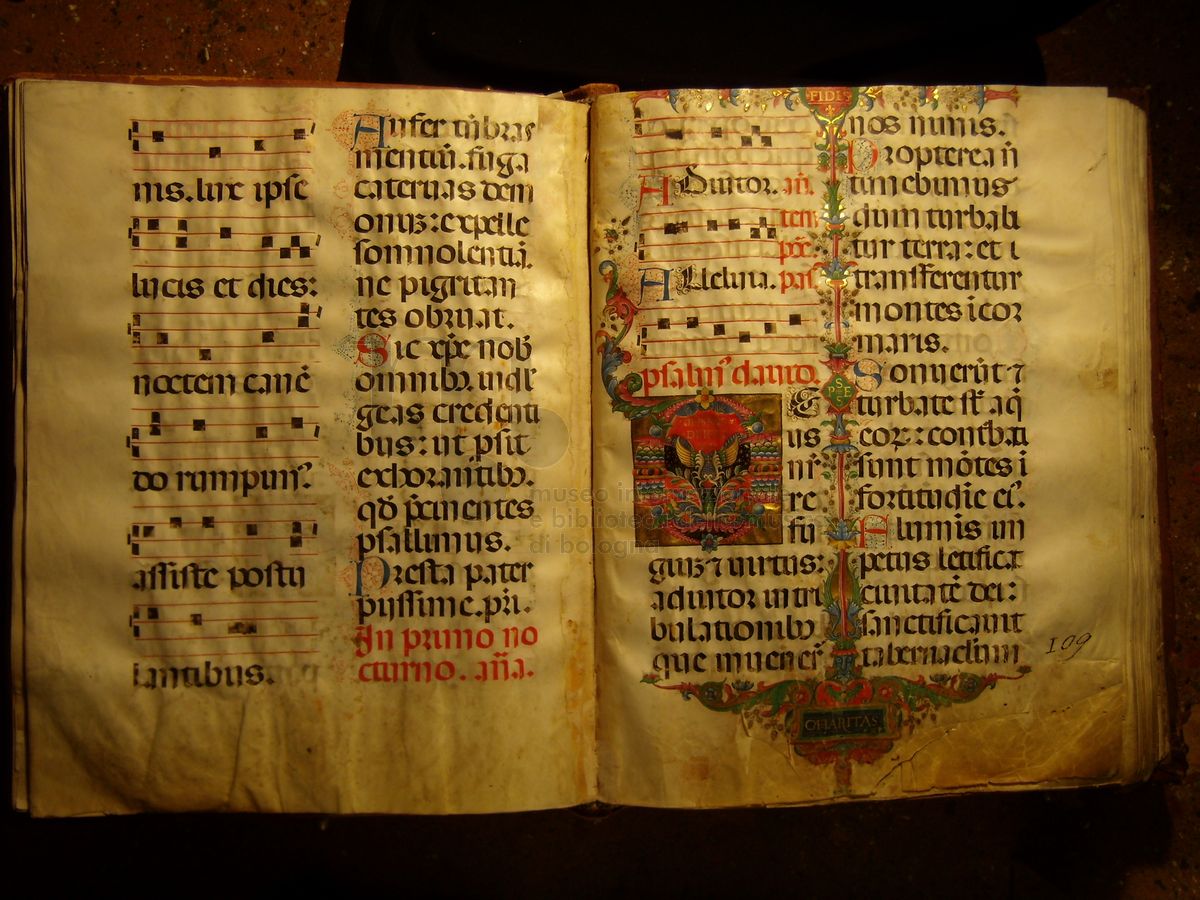 nis. lux ipse
lucis et dies:
noctem canē
do rumpim⁹.
assiste postu
lantibus.
Aufer tēbras
mentiū. fuga
cateruas dem
onuꝫ: expelle
somnolentiā.
ne pigritan
tes obruat.
Sic xp̄e nob̄
omnibꝫ indl'
geas credenti
bus: ut psit
exhorantibꝫ.
qđ p̄cinentes
psallimus.
Presta pater
pijssime. pr̄i.
In primo no
cturno. an̄a.
FIDES
Adiutor. an̄.
tem
pꝫ.
Alleluia. pas
psalm⁹ dauid.
E
us
nr̄
re
fu
guiꝫ ⁊ uirtus:
adiutor in tri
bulationibꝫ
que inuener̄
nos nimis.
Propterea n̄
timebimus
dum turbabi
tur terra: et t
transferentur
montes i cor
maris.
Sonuerūt ⁊
turbate st̄ aq̄
eoꝝ: conturbati
sunt mōtes i
fortitudīe ei⁹.
Flumīs im
petus letificat
ciuitatē dei:
sanctificauit
tabernaculum
SPES
CHARITAS
109
museo internazionale
e biblioteca della musica
di bologna